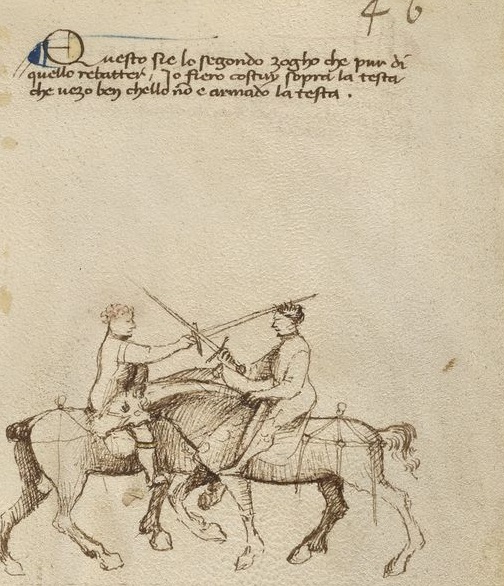 46
Questo sie lo segondo zogho che pur di
quello rebatter, Io fiero costuy sopra la testa
che vezo ben chello nō e armado la testa.